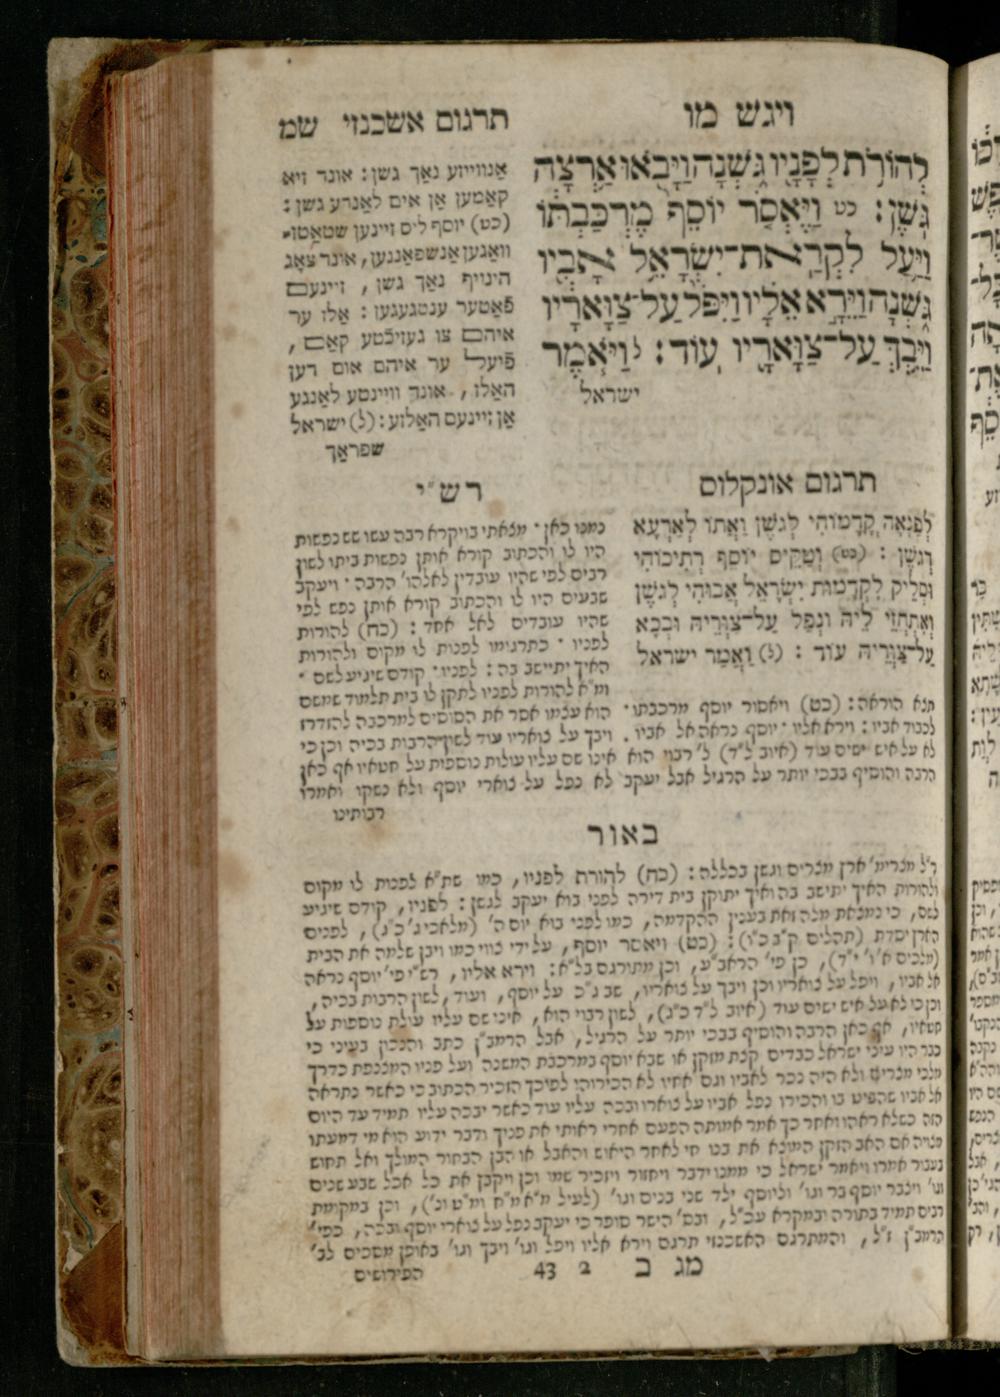 ויגש מו
תרגום אשכנזי שמ
לְהוֹרֹ֥ת לְפָנָ֖יו גֹּ֑שְׁנָה וַיָּבֹ֖אוּ אַ֥רְצָה
גֹּֽשֶׁן׃ כט וַיֶּאְסֹ֤ר יוֹסֵף֙ מֶרְכַּבְתּ֔וֹ
וַיַּ֛עַל לִקְרַֽאת־יִשְׂרָאֵ֥ל אָבִ֖יו
גֹּ֑שְׁנָה וַיֵּרָ֣א אֵלָ֗יו וַיִּפֹּל֙ עַל־צַוָּארָ֔יו
וַיֵּ֥בְךְּ עַל־צַוָּארָ֖יו עֽוֹד׃ ל וַיֹּ֧אמֶר
ישראל
אַנווייזע נאַך גשן: אונד זיא
קאַמען אַן אים לאַנדע גשן:
(כט) יוסף ליס זיינען שטאַטז־
וואַגען אַנשפּאַננען, אונד צאָג
הינויף נאַך גשן, זיינעם
פֿאַטער ענטגעגען: אַלז ער
איהם צו געזיכֿטע קאַם,
פֿיעל ער איהם אום דען
האַלז, אונד וויינטע לאַנגע
אַן זיינעם האַלזע: (ל) ישראל
שפראַך
תרגום אונקלוס
לְפַנָּאָה קֳדָמוֹהִי לְגשֶׁן וַאֲתוֹ לְאַרְעָא
דְגשֶׁן: (כט) וְטַקֵּיס יוֹסֵף רְתִיכוֹהִי
וּסְלֵיק לְקַדָּמוּת יִשְׂרָאֵל אֲבוּהִי לְגשֶׁן
וְאִתְחֲזִי לֵיהּ וּנְפַל עַל־צַוְּרֵיהּ וּבְכָא
עַל־צַוְּרֵיהּ עוֹד: (ל) וַאֲמַר ישראל
רש"י
כמנו כאן· מצאתי בויקרא רבה עשו שש נפשות
היו לו והכתוב קורא אותן נפשות ביתו לשון
רבים לפי שהיו עובדין לאלהו' הרבה· ויעקב
שבעים היו לו והכתוב קורא אותן נפש לפי
שהיו עובדים לאל אחד: (כח) להורות
לפניו· כתרגומו לפנות לו מקום ולהורות
האיך יתיישב בה: לפניו· קודם שיגיע לשם·
ומ"א להורות לפניו לתקן לו בית תלמוד שמשם
תצא הוראה: (כט) ויאסור יוסף מרכבתו· הוא עצמו אסר את הסוסים למרכבה להזדרז
לכבוד אביו: וירא אליו· יוסף נראה אל אביו. ויבך על צואריו עוד לשון הרבות בכיה וכן כי
לא על איש ישים עוד (איוב ל"ד) ל' רבוי הוא אינו שם עליו עולות נוספות על חטאיו אף כאן
הרבה והוסיף בבכי יותר על הרגיל אבל יעקב לא נפל על צוארי יוסף ולא נשקו ואמרו
רבותינו
באור
ר"ל מצרימ' ארץ מצרים וגשן בכללה: (כח) להורת לפניו, כמו שת"א לפנות לו מקום
ולהורות האיך יתישב בה ואיך יתוקן בית דירה לפני בוא יעקב לגשן: לפניו, קודם שיגיע
לשם, כי נמצאת מלה זאת בענין ההקדמה, כמו לפני בוא יום ה' (מלאכי ג' כ"ג), לפנים
הארץ יסדת (תהלים ק"ב כ"ו): (כט) ויאסר יוסף, על ידי צווי כמו ויבן שלמה את הבית
(מלכים א' ו' י"ד), כן פי' הראב"ע, וכן מתורגם בל"א: וירא אליו, רש"י פי' יוסף נראה
אל אביו, ויפל על צואריו וכן ויבך על צואריו, שב ג"כ על יוסף, ועוד, לשון הרבות בכיה,
וכן כי לא על איש ישים עוד (איוב ל"ד כ"ג), לשון רבוי הוא, אינו שם עליו עולת נוספות על
חטאיו, אף כאן הרבה והוסיף בבכי יותר על הרגיל, אבל הרמב"ן כתב והנכון בעיני כי
כבר היו עיני ישראל כבדים קצת מזקן או שבא יוסף במרכבת המשנה ועל פניו המצנפת כדרך
מלכי מצרים ולא היה נכר לאביו וגם אחיו לא הכירוהו לפיכך הזכיר הכתוב כי כאשר נתראה
אל אביו שהפיט בו והכירו נפל אביו על צוארו ובכה עליו עוד כאשר יבכה עליו תמיד עד היום
הזה כשלא ראהו ואחר כך אמר אמותה הפעם אחרי ראותי את פניך ודבר ידוע הוא מי דמעתו
מצויה אם האב הזקן המוצא את בנו חי לאחר היאוש והאבל או הבן הבחור המולך ואל תחוש
בעבור אמרו ויאמר ישראל כי ממנו ידבר ויחזור ויזכיר שמו וכן ויקבץ את כל אכל שבע שנים
וגו' ויצבר יוסף בר וגו' וליוסף ילד שני בנים וגו' (לעיל מ"א מ"ח ומ"ט ונ'), וכן במקומות
רבים תמיד בתורה ובמקרא עכ"ל, ובס' הישר סופר כי יעקב נפל על צוארי יוסף ובכה, כפי'
הרמב"ן ז"ל, והמתרגם האשכנזי תרגם וירא אליו ויפל וגו' ויבך וגו' באופן מסכים לב'
הפירושים
מג ב 2 43